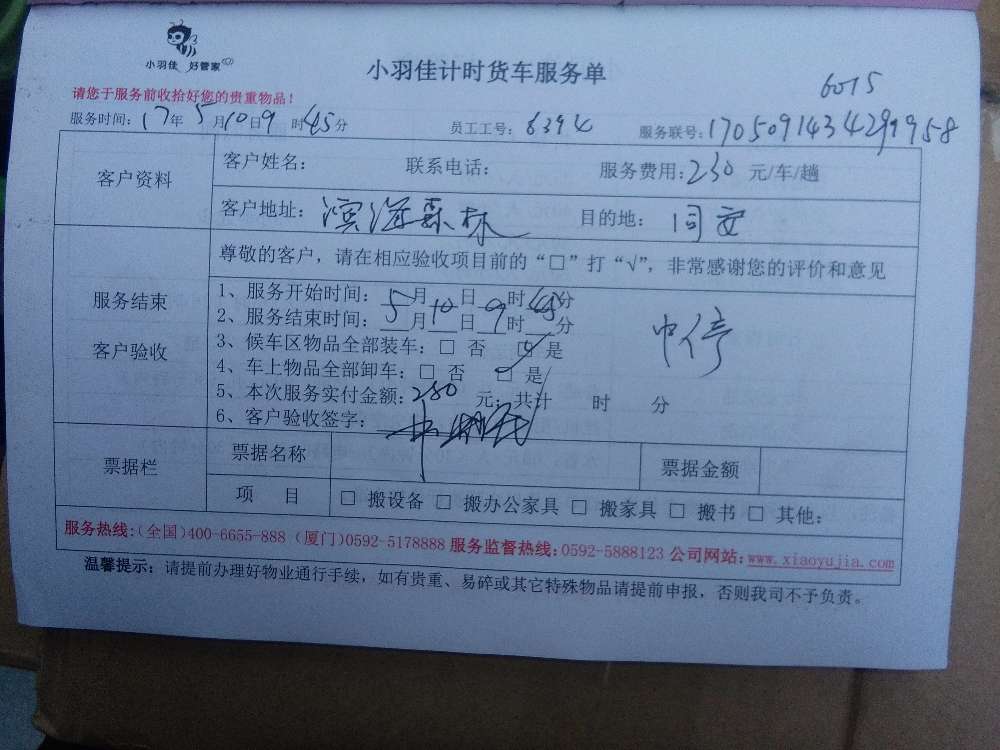 小羽佳 好管家
小羽佳计时货车服务单
6015
请您于服务前收拾好您的贵重物品!
服务时间: 17年 5月10日9时45分 员工工号: 6394 服务联号: 1705091434299958
客户资料
客户姓名: 联系电话: 服务费用: 230 元/车/趟
客户地址: 滨海森林 目的地: 同安
服务结束
客户验收
尊敬的客户，请在相应验收项目前的“□”打“√”，非常感谢您的评价和意见
1、服务开始时间: 5月10日9时45分
2、服务结束时间: 月 日 时 分
中停
3、候车区物品全部装车: □ 否 □ 是
4、车上物品全部卸车: □ 否 □ 是
5、本次服务实付金额: 280 元; 共计 时 分
6、客户验收签字:
票据栏
票据名称 票据金额
项 目 □ 搬设备 □ 搬办公家具 □ 搬家具 □ 搬书 □ 其他:
服务热线:(全国)400-6655-888 (厦门)0592-5178888 服务监督热线:0592-5888123 公司网站: www.xiaoyujia.com
温馨提示: 请提前办理好物业通行手续，如有贵重、易碎或其它特殊物品请提前申报，否则我司不予负责。